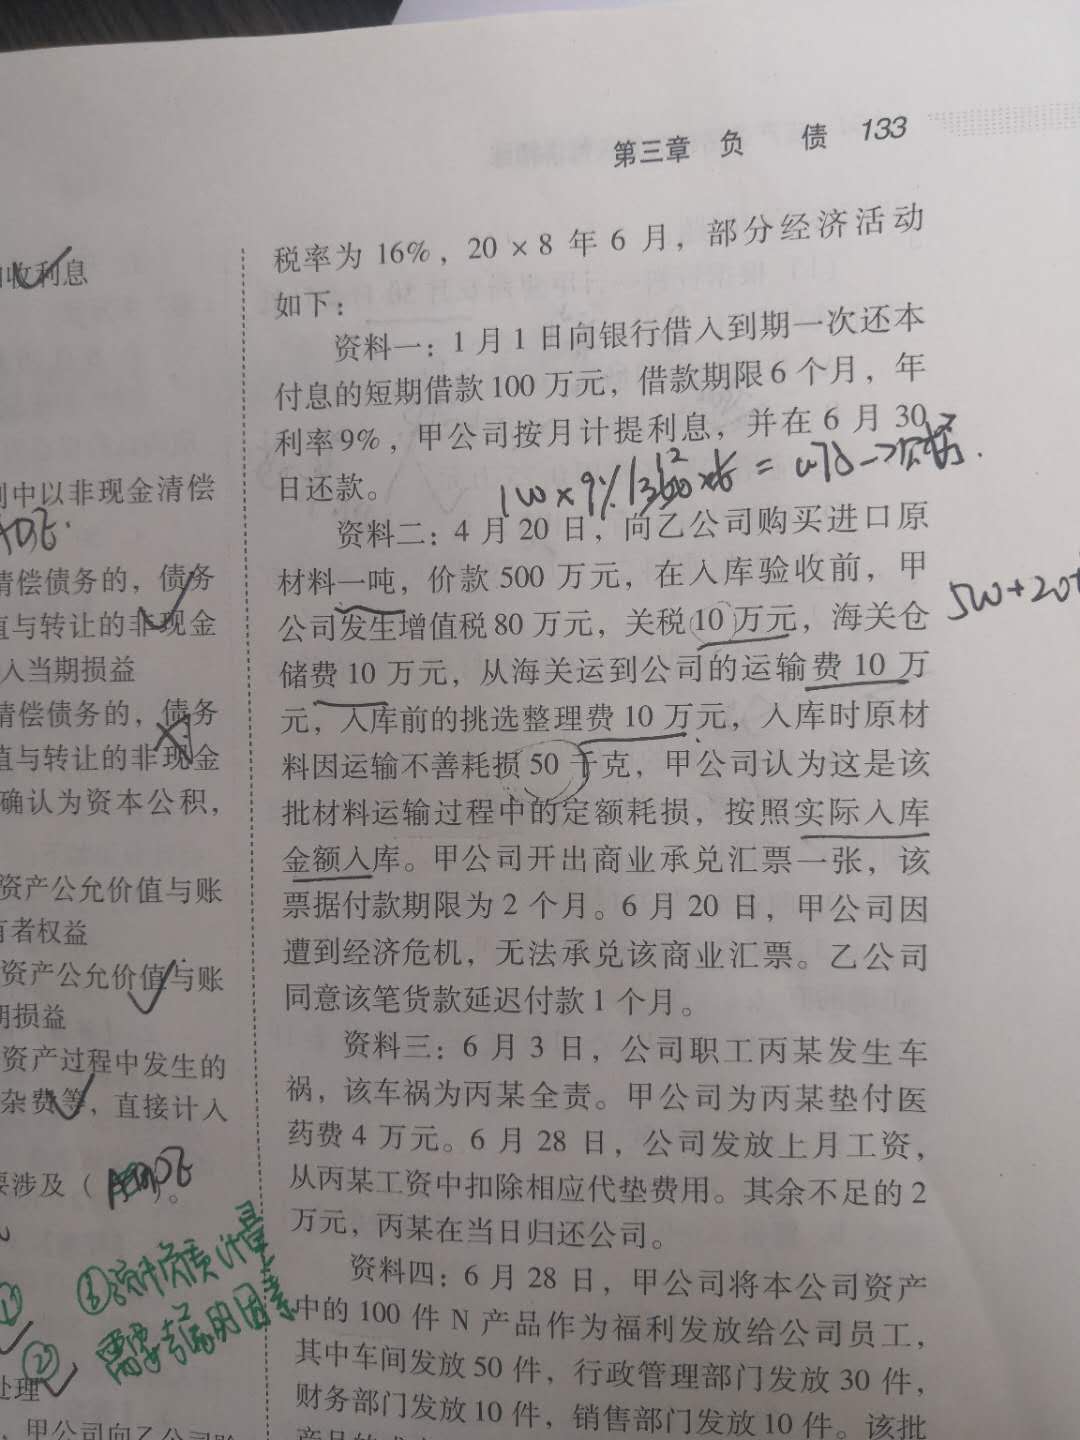 第三章 负 债 133
收利息
列中以非现金清偿
ADE.
清偿债务的，债务
值与转让的非现金
入当期损益
清偿债务的，债务
值与转让的非现金
确认为资本公积，
资产公允价值与账
有者权益
资产公允价值与账
期损益
资产过程中发生的
杂费等，直接计入
要涉及（ ）。
①
②
①
需要考虑的因素
处理
，甲公司向乙公司
税率为 16%，20×8 年 6 月，部分经济活动
如下：
资料一：1 月 1 日向银行借入到期一次还本
付息的短期借款 100 万元，借款期限 6 个月，年
利率 9%，甲公司按月计提利息，并在 6 月 30
日还款。
资料二：4 月 20 日，向乙公司购买进口原
材料一吨，价款 500 万元，在入库验收前，甲
公司发生增值税 80 万元，关税 10 万元，海关仓
储费 10 万元，从海关运到公司的运输费 10 万
元，入库前的挑选整理费 10 万元，入库时原材
料因运输不善耗损 50 千克，甲公司认为这是该
批材料运输过程中的定额耗损，按照实际入库
金额入库。甲公司开出商业承兑汇票一张，该
票据付款期限为 2 个月。6 月 20 日，甲公司因
遭到经济危机，无法承兑该商业汇票。乙公司
同意该笔货款延迟付款 1 个月。
资料三：6 月 3 日，公司职工丙某发生车
祸，该车祸为丙某全责。甲公司为丙某垫付医
药费 4 万元。6 月 28 日，公司发放上月工资，
从丙某工资中扣除相应代垫费用。其余不足的 2
万元，丙某在当日归还公司。
资料四：6 月 28 日，甲公司将本公司资产
中的 100 件 N 产品作为福利发放给公司员工，
其中车间发放 50 件，行政管理部门发放 30 件，
财务部门发放 10 件，销售部门发放 10 件。该批